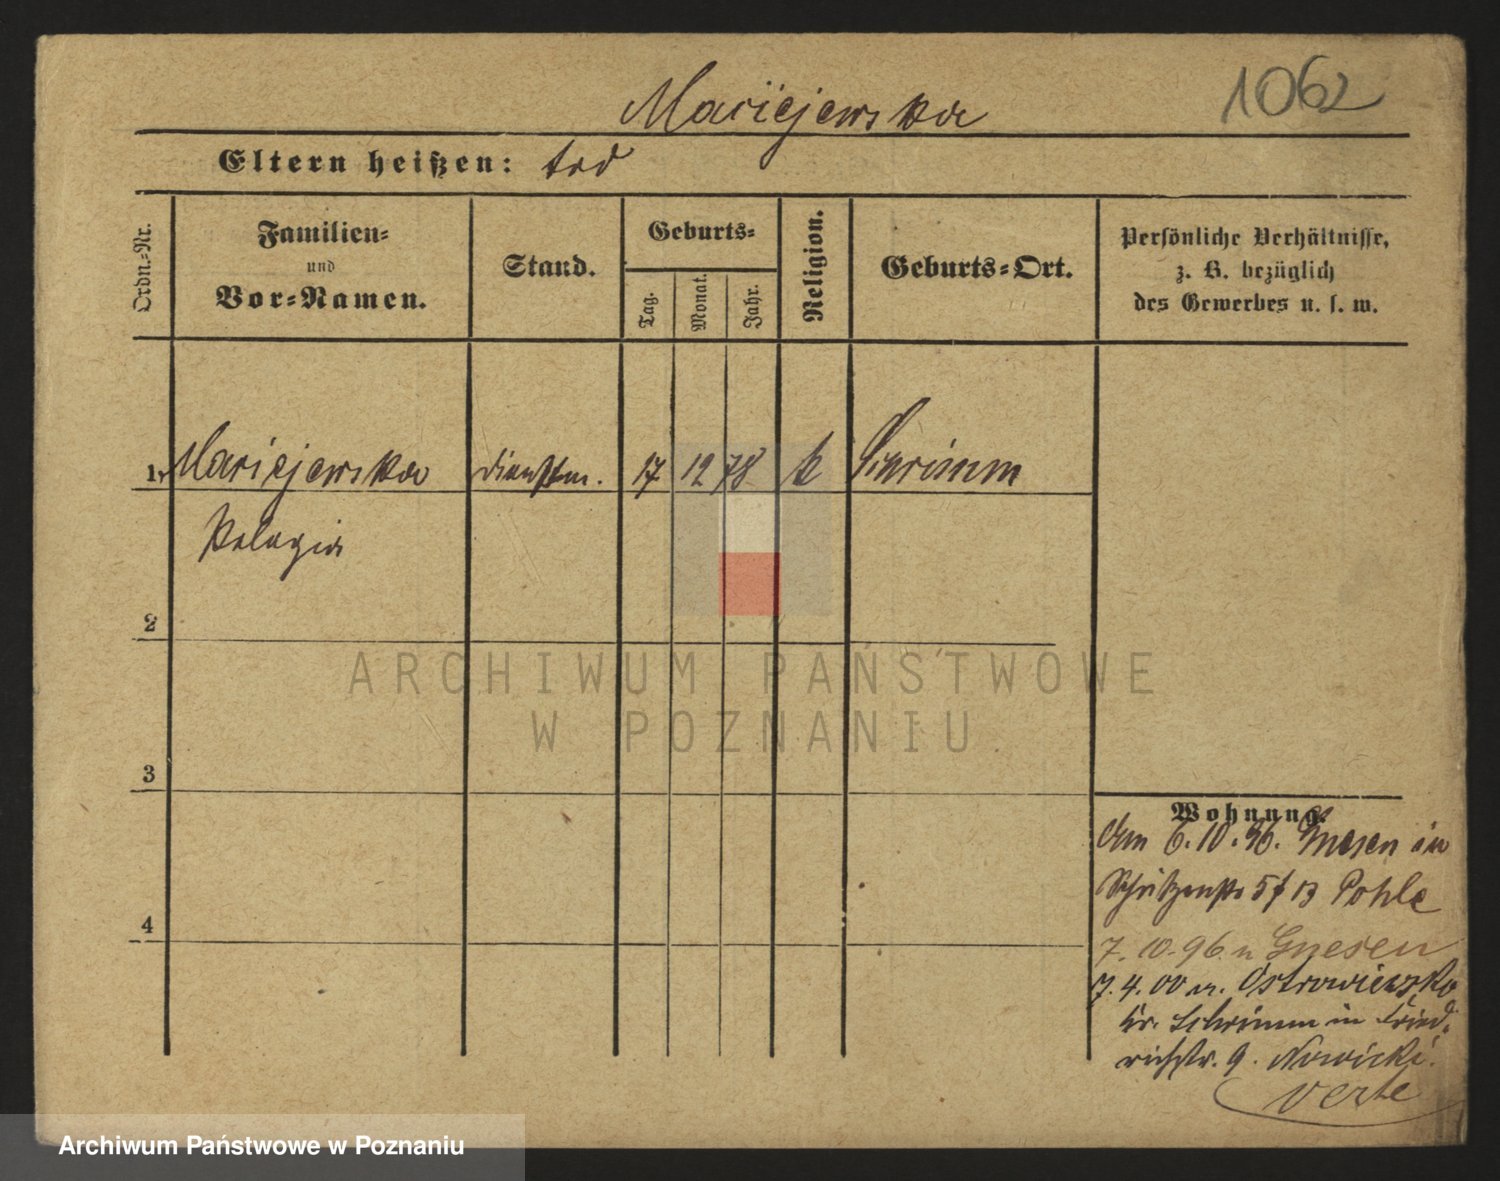 1062
Maciejewska
Eltern heißen: tod
Ordn.-Nr.
Familien-
und
Vor-Namen.
Stand.
Geburts-
Tag.
Monat.
Jahr.
Religion.
Geburts-Ort.
Persönliche Verhältnisse,
z. B. bezüglich
des Gewerbes u. s. w.
1. Maciejewska dienstm. 17 12 78 k Schrimm
Pelagia
2
3
4
Wohnung.
6.10.96. Gnesen in
Schützenstr 5 13 Pohle
7.10.96 n Gnesen
7.4.00 v. Ostrowieczko
Kr. Schrimm in Fried-
richstr. 9. Nowicki.
verte
ARCHIWUM PAŃSTWOWE
W POZNANIU
Archiwum Państwowe w Poznaniu